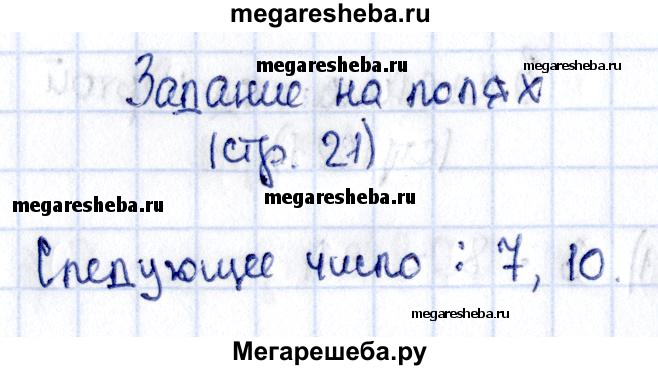 megaresheba.ru
megaresheba.ru
megaresheba.ru
Задание на полях
(стр. 21)
megaresheba.ru
megaresheba.ru
Следующее число : 7, 10.
megaresheba.ru
Мегарешеба.ру